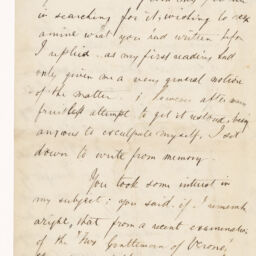 in searching for it, wishing to ex
amine what you had written before
I replied. as my first reading had
only given me a very general notion
of the matter. I however after many
fruitless attempt to get it restored, being
anxious to exculpate myself, I set
down to write from memory.
You took some interest in
my subject: you said, if I remember
aright, that from a recent examination
of the "Two Gentlemen of Verona,"